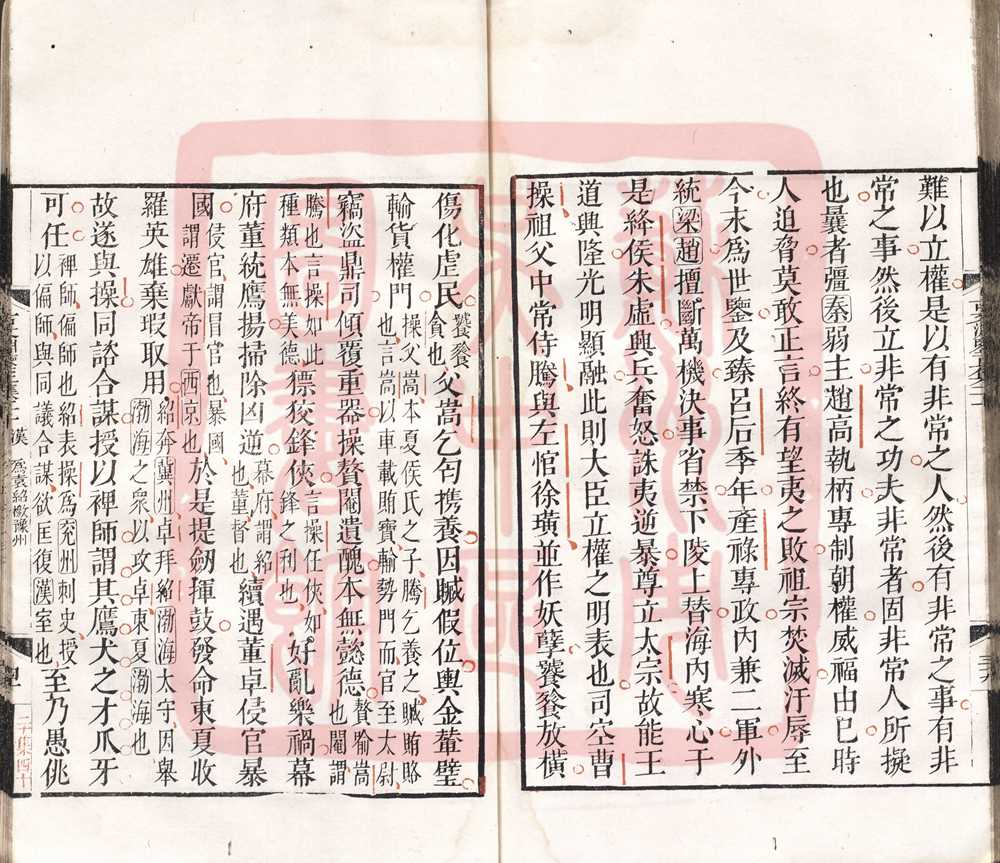 難以立權是以有非常之人然後有非常之事有非
常之事然後立非常之功夫非常者固非常人所擬
也曩者彊秦弱主趙高執柄專制朝權威福由己時
人迫脅莫敢正言終有望夷之敗祖宗焚滅汙辱至
今末爲世鑒及臻呂后季年產祿專政內兼二軍外
統梁趙擅斷萬機決事省禁下陵上替海內寒心于
是絳侯朱虛興兵奮怒誅夷逆暴尊立太宗故能王
道興隆光明顯融此則大臣立權之明表也司空曹
操祖父中常侍騰與左悺徐璜並作妖孽饕餮放橫
傷化虐民饕餮貪也父嵩乞匄攜養因贓假位輿金輦璧
輸貨權門操父嵩本夏侯氏之子騰乞養之贓賄賂也言嵩以車載賄寶輸勢門而官至太尉
竊盜鼎司傾覆重器操贅閹遺醜本無懿德贅喻嵩也閹謂
騰也言操如此種類本無美德獧狡鋒俠言操任俠如鋒之利也好亂樂禍幕
府董統鷹揚掃除凶逆幕府謂紹也董督也續遇董卓侵官暴
國侵官謂冒官也暴國謂遷獻帝于西京也於是提劒揮鼓發命東夏收
羅英雄棄瑕取用紹奔冀州卓拜紹渤海太守因舉渤海之衆以攻卓東夏渤海也
故遂與操同諮合謀授以裨師謂其鷹犬之才爪牙
可任裨師偏師也紹表操爲兖州刺史授以偏師與同議合謀欲匡復漢室也至乃愚佻
漢
爲袁紹檄豫州